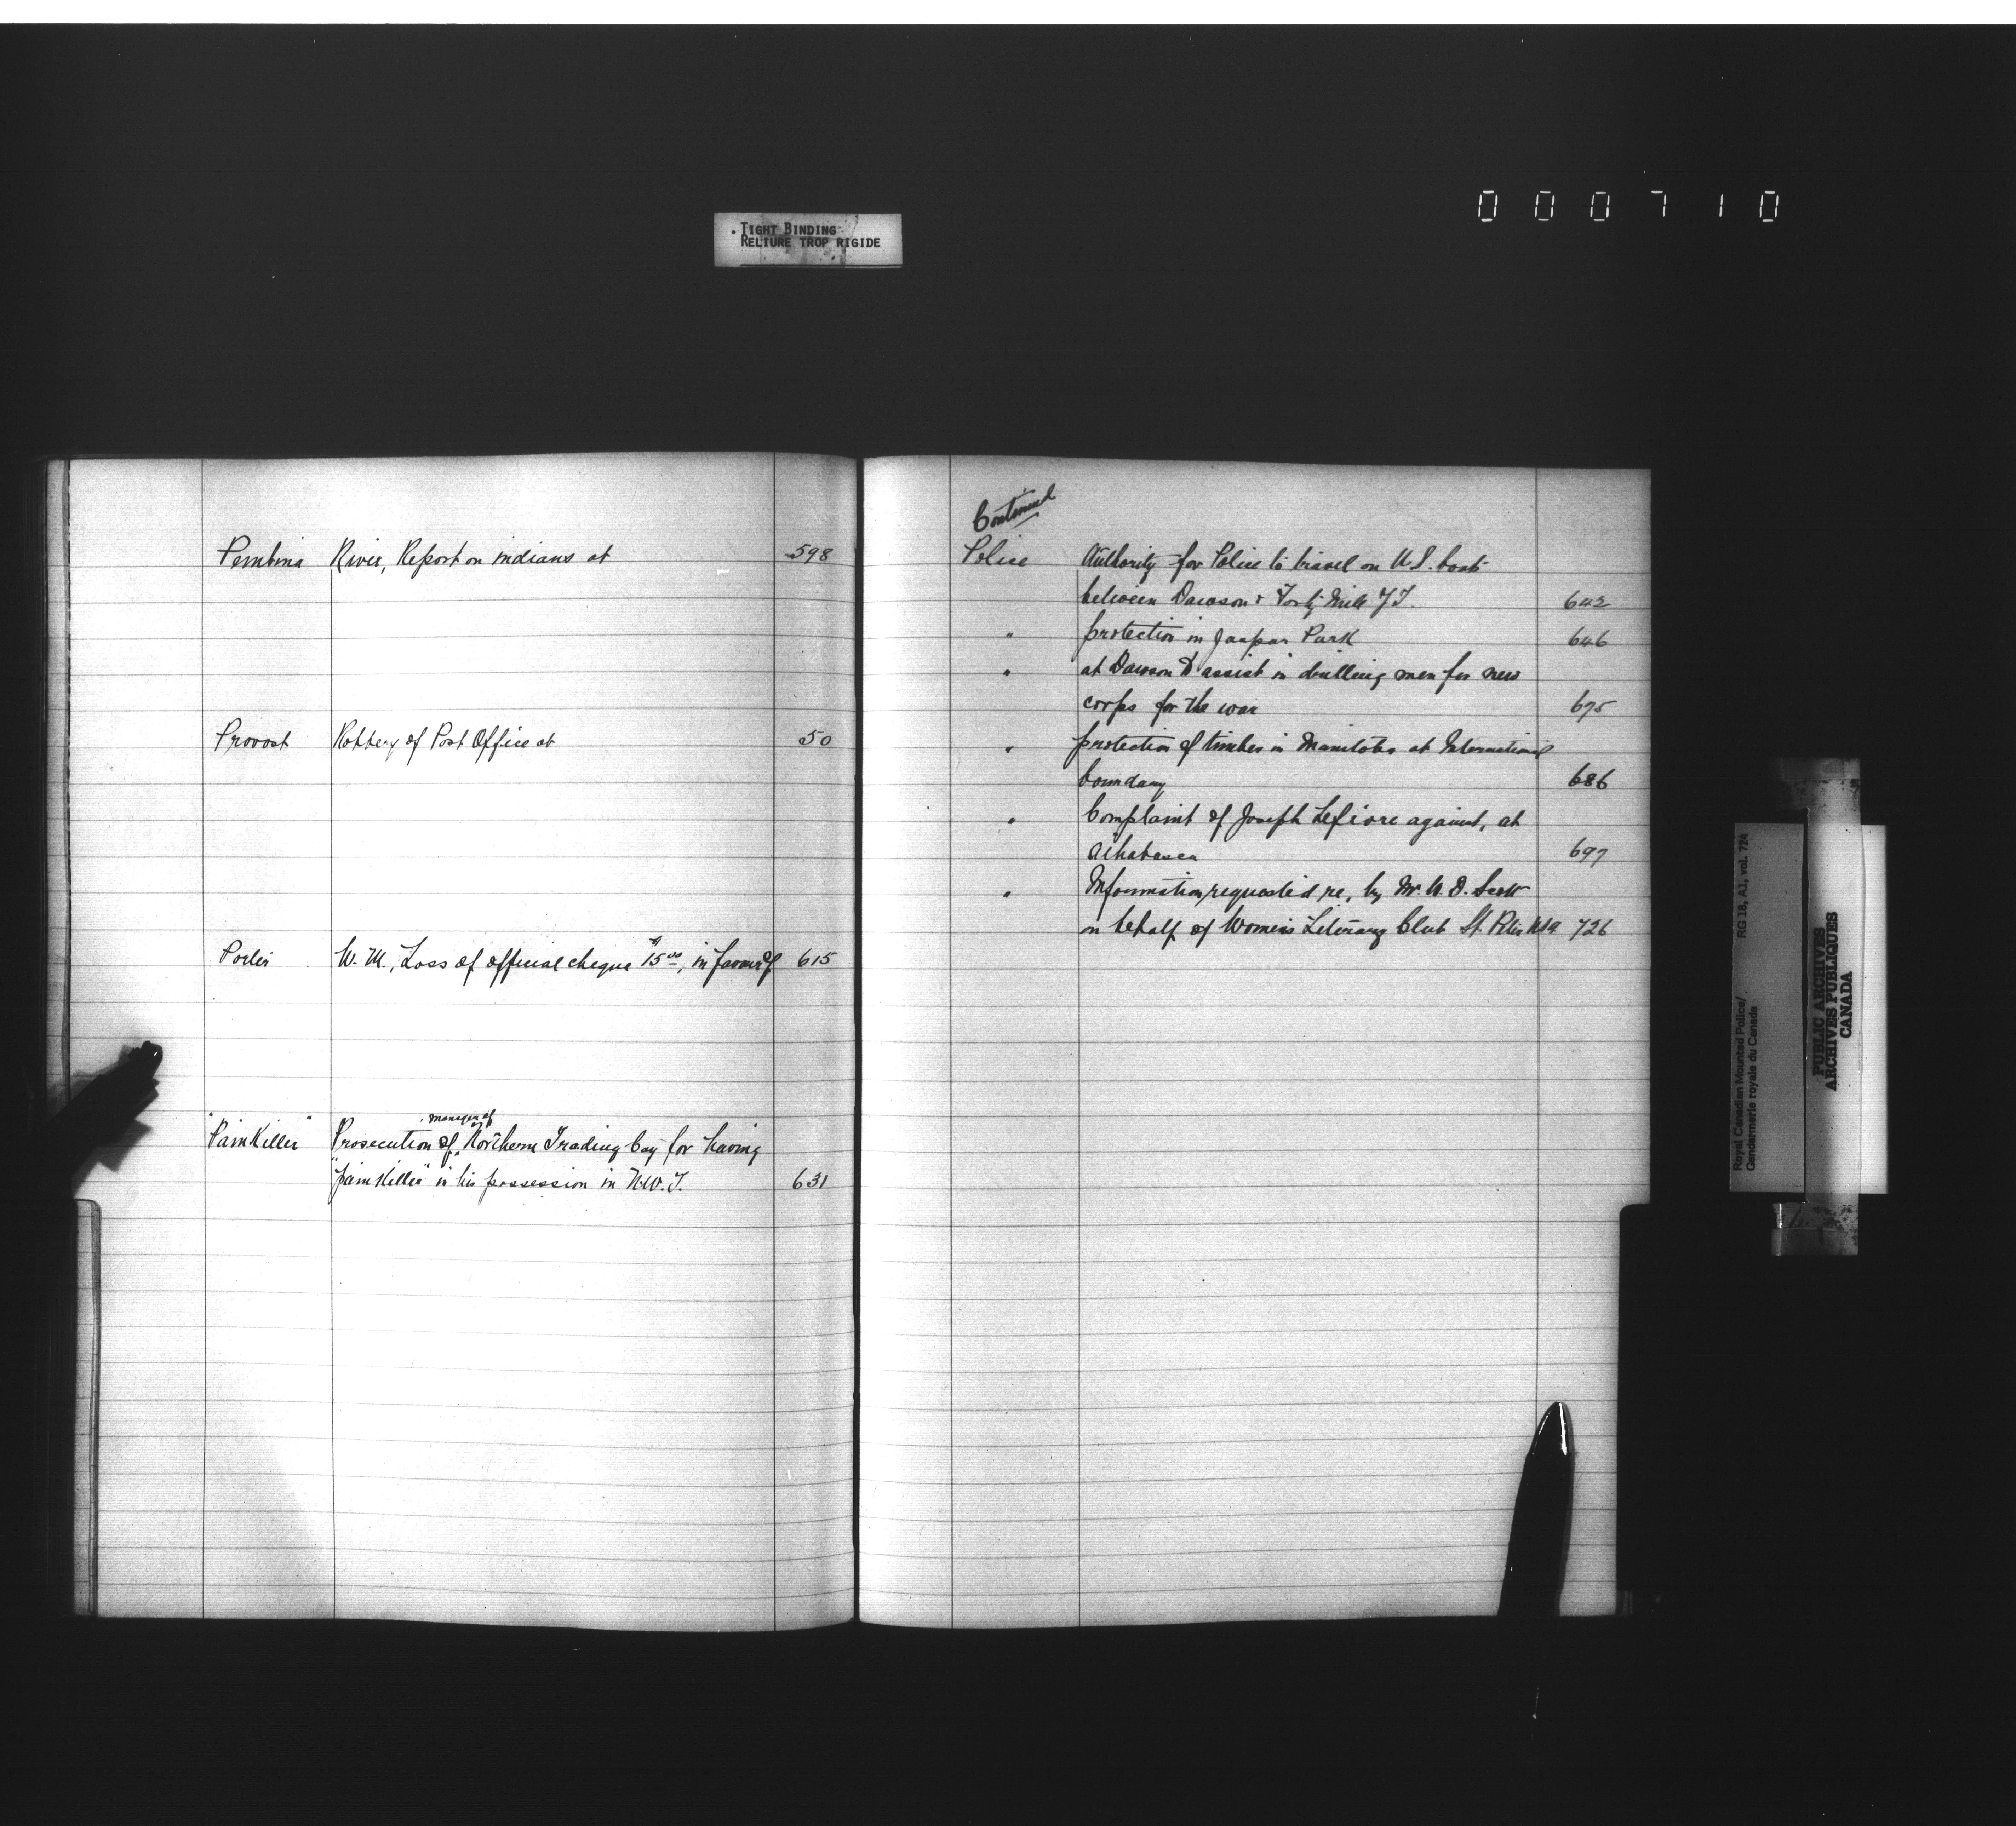 000710
TIGHT BINDING
RELIURE TROP RIGIDE
Pembina River, Report on indians at 598
Provost Robbery of Post Office at 50
Porter W. M., Loss of official cheque 15.00, in favour of 615
manager of
"PainKiller" Prosecution of Northern Trading Coy for having
"painkiller" in his possession in N.W.T. 631
Continued
Police Authority for Police to travel on U.S. boats
between Dawson & Forty Mile Y.T. 642
" protection in Jaspar Park 646
" at Dawson to assist in drilling men for new
corps for the war 675
" protection of timber in Manitoba at International
boundary 686
" Complaint of Joseph against, at
Athabasca 697
" Information requested re, by Mr. W. D. Scott
on behalf of Women's Literary Club St. 726
RG 18, A1, vol. 724
Royal Canadian Mounted Police/
Gendarmerie royale du Canada
PUBLIC ARCHIVES
ARCHIVES PUBLIQUES
CANADA